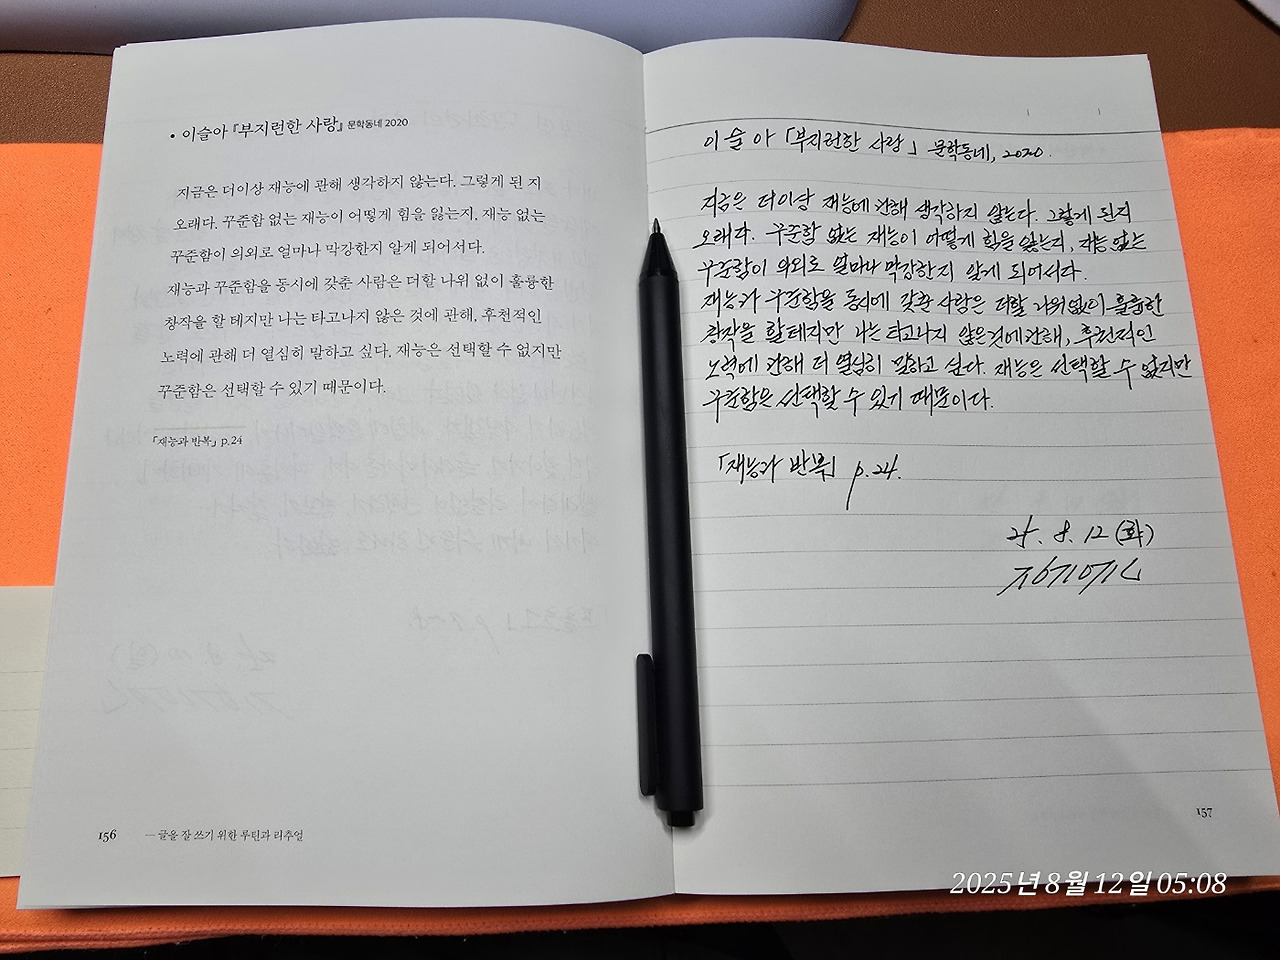 • 이슬아 『부지런한 사랑』 문학동네 2020
지금은 더이상 재능에 관해 생각하지 않는다. 그렇게 된 지
오래다. 꾸준함 없는 재능이 어떻게 힘을 잃는지, 재능 없는
꾸준함이 의외로 얼마나 막강한지 알게 되어서다.
재능과 꾸준함을 동시에 갖춘 사람은 더할 나위 없이 훌륭한
창작을 할 테지만 나는 타고나지 않은 것에 관해, 후천적인
노력에 관해 더 열심히 말하고 싶다. 재능은 선택할 수 없지만
꾸준함은 선택할 수 있기 때문이다.
「재능과 반복」 p.24
156 — 글을 잘 쓰기 위한 루틴과 리추얼
이슬아 「부지런한 사랑」 문학동네, 2020.
지금은 더이상 재능에 관해 생각하지 않는다. 그렇게 된지
오래다. 꾸준함 없는 재능이 어떻게 힘을 잃는지, 재능 없는
꾸준함이 의외로 얼마나 막강한지 알게 되어서다.
재능과 꾸준함을 동시에 갖춘 사람은 더할 나위없이 훌륭한
창작을 할테지만 나는 타고나지 않은것에 관해, 후천적인
노력에 관해 더 열심히 말하고 싶다. 재능은 선택할 수 없지만
꾸준함은 선택할 수 있기 때문이다.
「재능과 반복」 p.24.
25. 8. 12 (화)
157
2025년 8월 12일 05:08